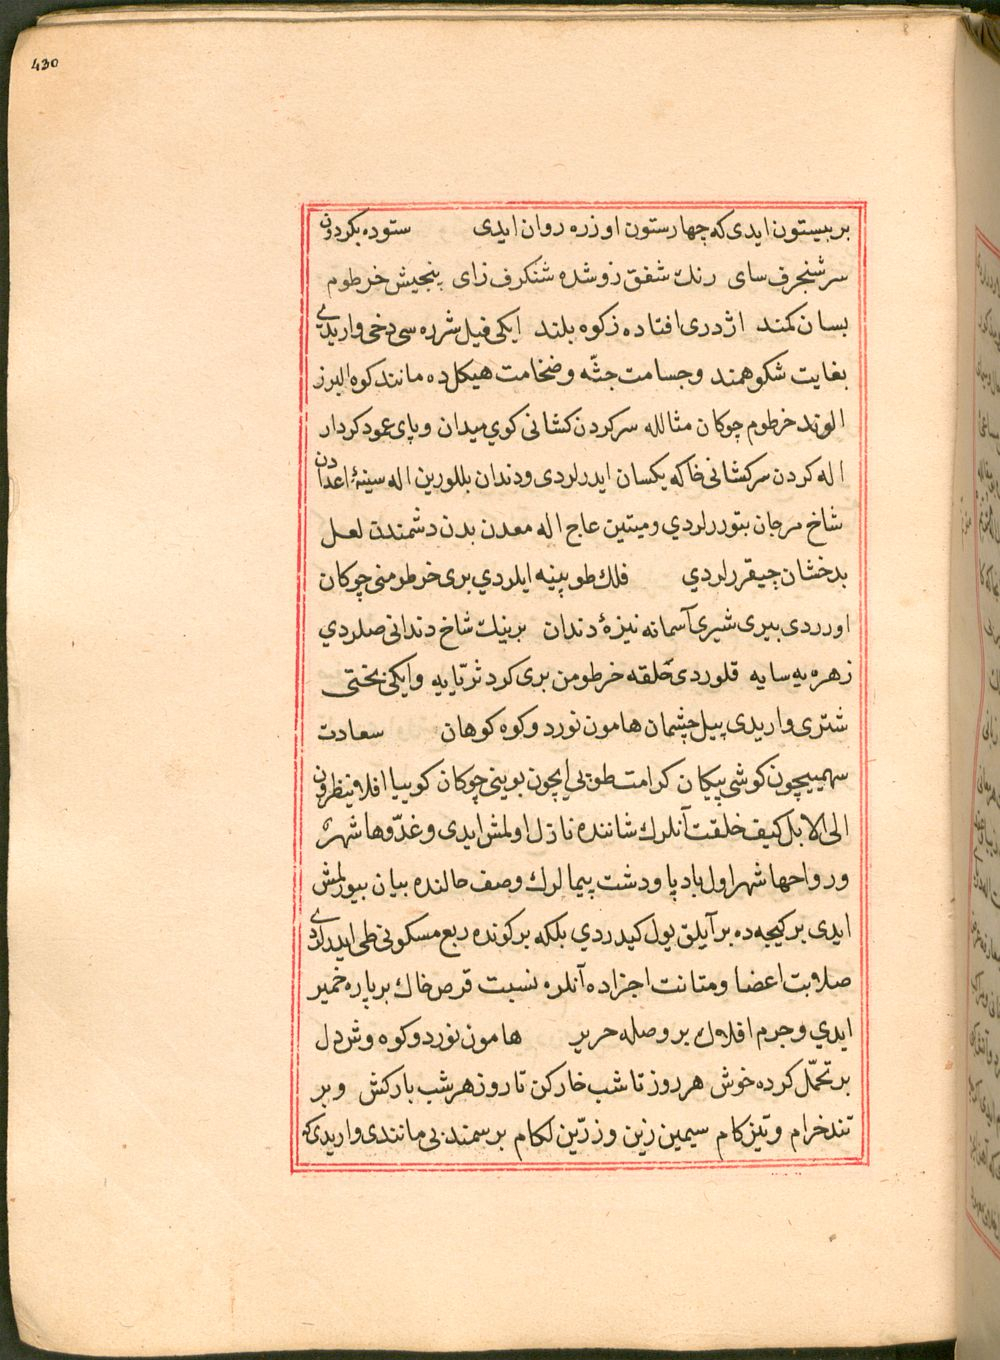 430
بر بیستون ایدی که چهار ستون اوزره روان ایدی ستوده بکردون
سر شنجرف سای رنك شفق زو شده شنکرف زای پنجیش خرطوم
بسان کمند اژدری افتاده زکوه بلند ایکی فیل شرزه سی دخی واریدی
بغایت شکوهمند وجسامت جثّه وضخامت هیکلده مانند کوه البرز
الوند خرطوم چوکان مثالله سرکردن کشانی کوی میدان وپای عمود کردار
اله کردن سرکشانی خاکه یکسان ایدرلردی ودندان بللورین اله سینهٔ اعدادن
شاخ مرجان بتوررلردي ومیتین عاج اله معدن بدن دشمندن لعل
بدخشان چیقررلردي فلك طوپینه ایلردي بری خرطومنی چوکان
اورردی بیری شیری آسمانه نیزهٔ دندان برینك شاخ دندانی صلردي
زهره یه سایه قلوردی حلقه خرطومن بری کرد ثریّایه وایکی بختی
شتری واریدی پیل چشمان هامون نورد وکوه کوهان سعادت
سهمیچون کوشی پیکان کرامت طوبی ایچون بوینی چوکان کوییا افلا ینظرون
الی الابل کیف خلقت آنلرك شاننده نازل اولمش ایدی وغدّوها شهر
ورواحها شهر اول باد پا ودشت پیمالرك وصف حالنده بیان بیورلمش
ایدی بر کیجه ده بر آیلق یول کیدردي بلکه بر کونده ربع مسکونی طی ایدرلردی
صلابت اعضا ومتانت اجزاده آنلره نسبت قرص خاك بر پاره خمیر
ایدي وجرم افلاك بر وصله حریر هامون نورد وکوه وش دل
بر تحمّل کرده خوش هر روز تا شب خارکن تا روز هر شب بارکش وبر
تند خرام وتیز کام سیمین زین وزرّین لکام بر سمند بی مانندی واریدی که